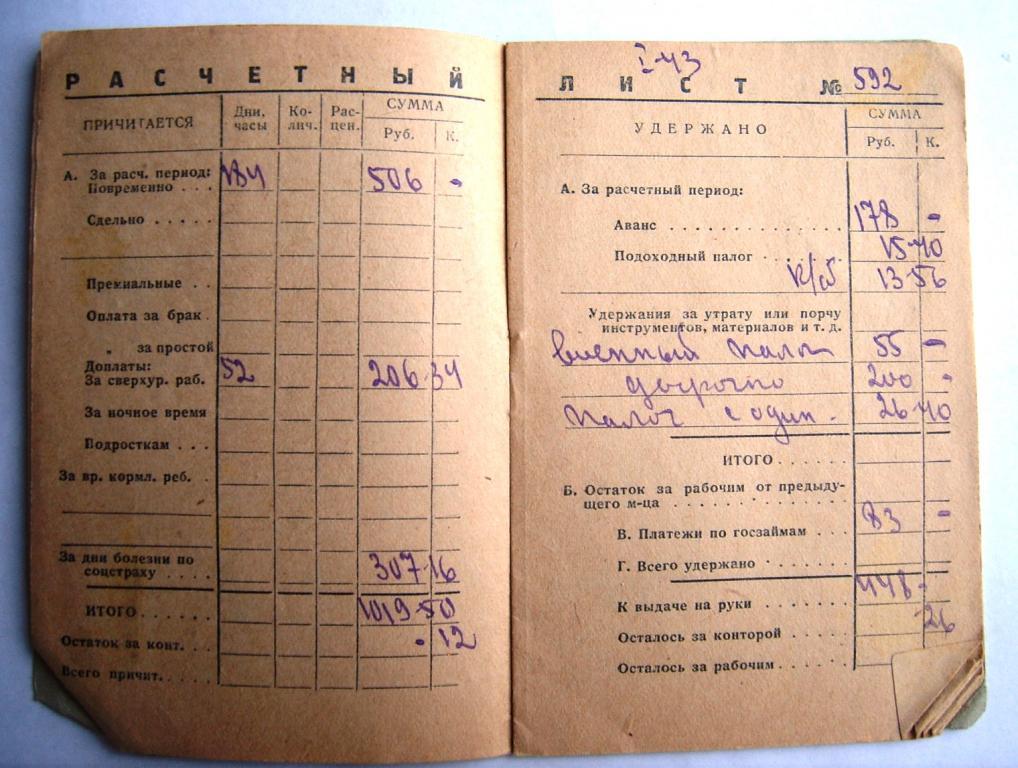 РАСЧЕТНЫЙ
ПРИЧИТАЕТСЯ Дни, часы Ко-лич. Рас-цен. СУММА
Руб. К.
А. За расч. период:
Повременно . . . 184 506 -
Сдельно . . . . .
Премиальные . .
Оплата за брак .
„ за простой
Доплаты:
За сверхур. раб. 52 206 34
За ночное время
Подросткам . . .
За вр. кормл. реб. .
За дни болезни по
соцстраху . . . . 307 16
ИТОГО . . . . . . 1019-50
Остаток за конт. . - 12
Всего причит. . . . .
I-43
ЛИСТ № 592
УДЕРЖАНО СУММА
Руб. К.
А. За расчетный период:
Аванс . . . . . . . . . . . . 178 -
Подоходный налог . . . . . . 15-40
к/сб 13-56
Удержания за утрату или порчу
инструментов, материалов и т. д.
военный налог 55 -
досрочно 200 -
налог с один. 26-40
ИТОГО . . . . . .
Б. Остаток за рабочим от предыду-
щего м-ца . . . . . . . . . . . .
В. Платежи по госзаймам . . . 83 -
Г. Всего удержано . . . . . .
К выдаче на руки . . . . . . 448 -
Осталось за конторой . . . . . 26
Осталось за рабочим . . . . . .